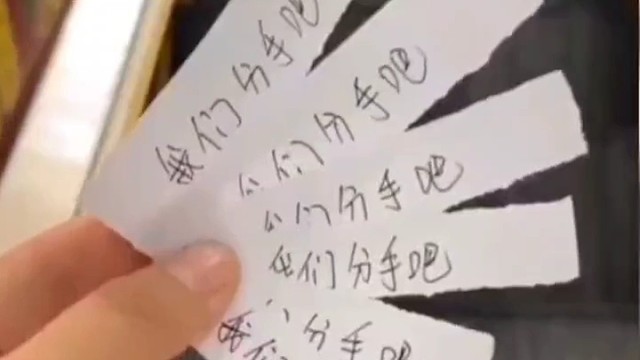 我们分手吧
们分手吧
们分手吧
我们分手吧
我们分手吧
我们